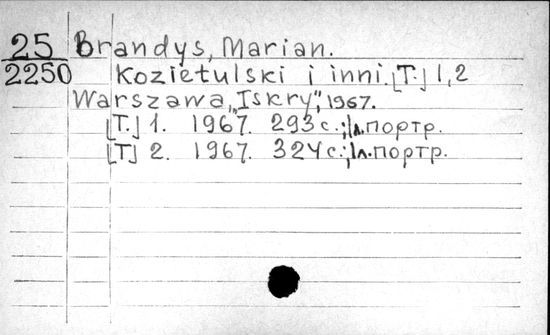 25 Brandys, Marian.
2250 Kozietulski i inni. [T.] 1, 2
Warszawa, „Iskry", 1967.
[T.] 1. 1967. 293 с.; 1 л. портр.
[T] 2. 1967. 324 с.; 1 л. портр.